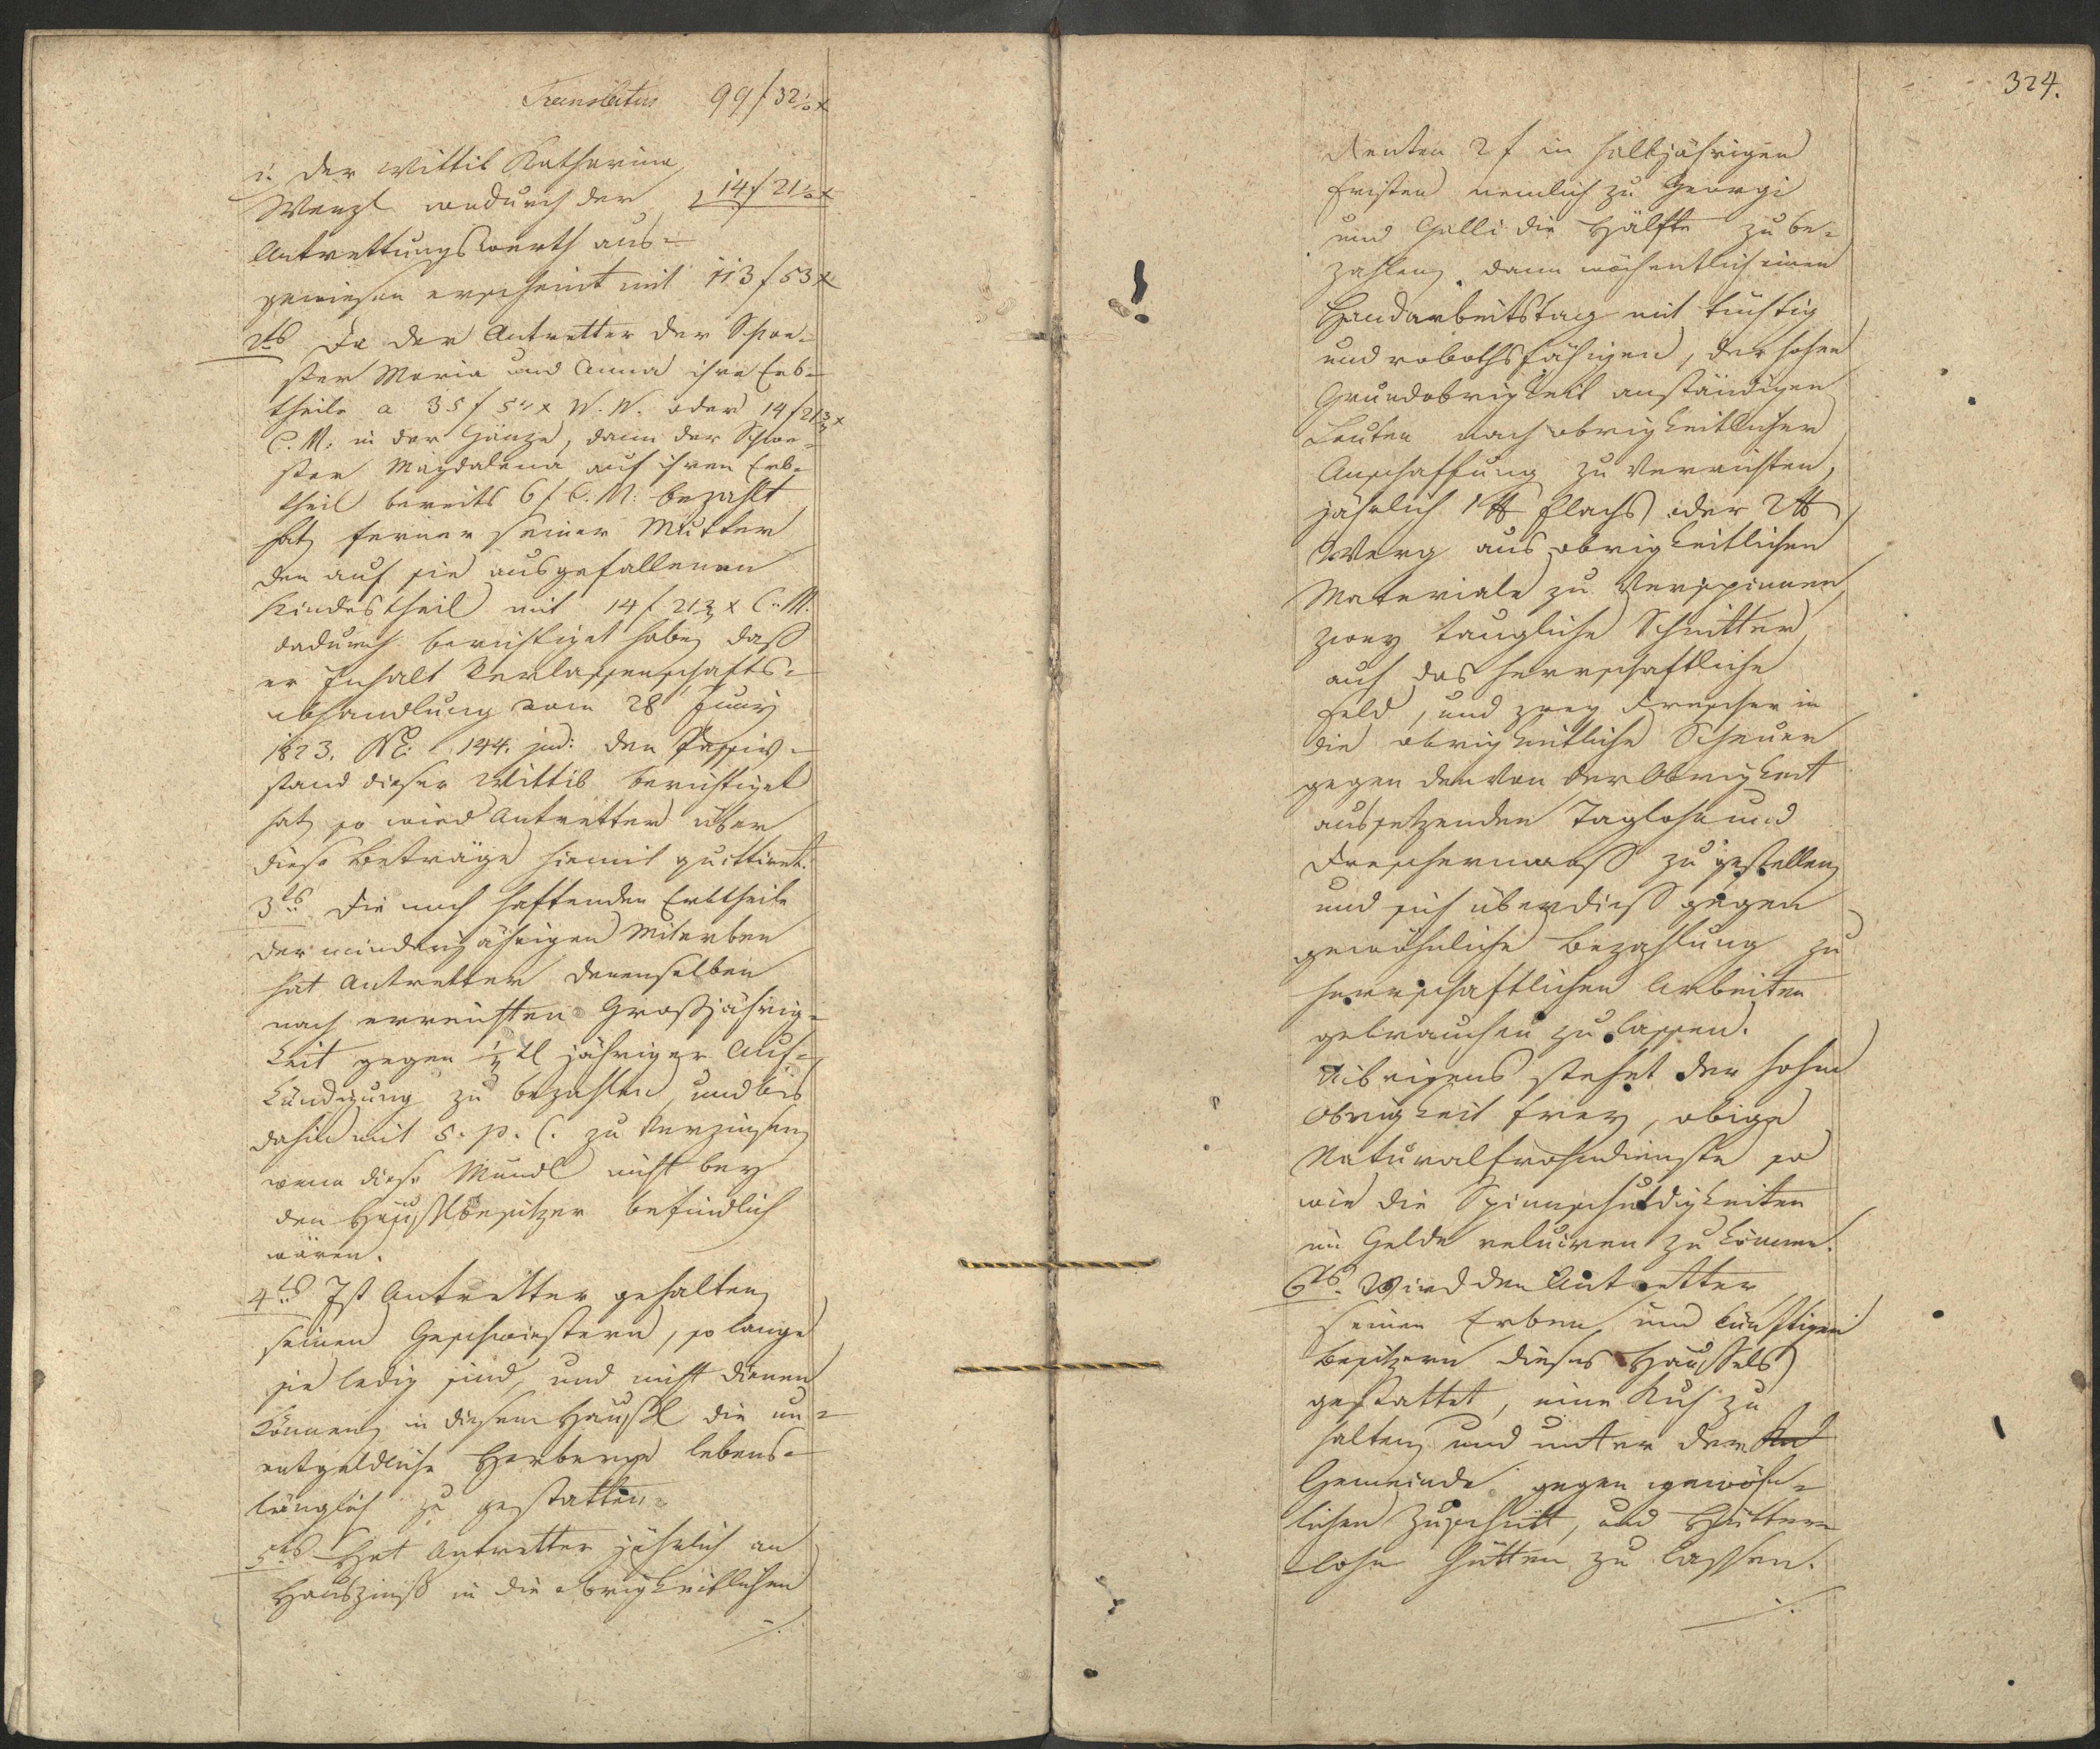 Translatus 99 f 32½ x
i. der Wittib Katharina
Wenzl wodurch der 14 f 21½ x
Antrettungswerth aus-
gewiesen erscheint mit 113 f 53 x
2tes Da der Antretter der Schwe-
ster Maria und Anna ihre Erb-
theile a 35 f 54 x W. W. oder 14 f 21¾ x
C. M. in der Gänze, dann der Schwe-
ster Magdalena auf ihren Erb-
theil bereits 6 f C. M. bezahlt
hat, ferner seiner Mutter
den auf sie ausgefallenen
Kindestheil mit 14 f 21¾ x C. M.
dadurch berichtiget habe, daß
er Inhalt Verlassenschafts-
abhandlung vom 28 Juny
1823. No. 144. jud: den Passiv-
stand dieser Wittib berichtiget
hat, so wird Antretter über
diese Beträge hiemit quittiret.
3tes Die noch haftenden Erbtheile
der minderjährigen Miterben
hat Antretter denenselben
nach erreichten Großjährig-
keit gegen ½ tl jähriger Auf-
kündigung zu bezahlen, und bis
dahin mit 5. p. C. zu verzinsen,
wenn diese Mündl nicht bey
den Häußlbesitzer befindlich
wären.
4tes Ist Antretter gehalten,
seinen Geschwistern, so lange
sie ledig sind, und nicht dienen
können, in diesem Häußl die un-
entgeldliche Herberge lebens-
länglich zu gestatten.
5tes Hat Antretter jährlich an
Hauszinß in die obrigkeitlichen
./.
324.
Renten 2 f in halbjährigen
Fristen nemlich zu Georgi
und Galli die Hälfte zu be-
zahlen, dann wöchentlich einen
Handarbeitstag mit tüchtig
und robothsfähigen, der hohen
Grundobrigkeit anständigen
Leuten nach obrigkeitlicher
Anschaffung zu verrichten,
jährlich 1 ℔ Flachs oder 2 ℔
Werg aus obrigkeitlichen
Materiale zu verspinnen,
zwey taugliche Schnitter
auf das herrschaftliche
Feld, und zwey Drescher in
die obrigkeitliche Scheuer
gegen den von der Obrigkeit
auszusetzenden Taglohn und
Dreschermaaß zu gestellen,
und sich überdieß gegen
gewöhnliche Bezahlung zu
herrschaftlichen Arbeiten
gebrauchen zu lassen.
Uibrigens stehet der hohen
Obrigkeit frey, obige
Naturalfrohndienste so
wie die Spinnschuldigkeiten
im Gelde reluiren zu können.
6tes Wird den Antretter
seinen Erben und künftigen
Besitzern dieses Häußels
gestattet, eine Kuh zu
halten, und unter der
Gemeinde gegen gewöhn-
lichen Zuschütt, und Hütter-
lohn hütten zu lassen.
./.